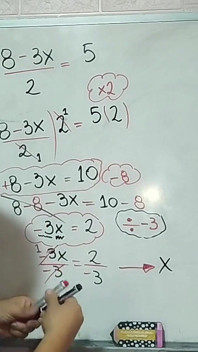 8-3x/2 = 5
×2
(8-3x/2)2 = 5(2)
1
1
+8-3x = 10 -8
8-8-3x = 10-8
-3x = 2 ÷-3
1 -3x/-3 = 2/-3 → x